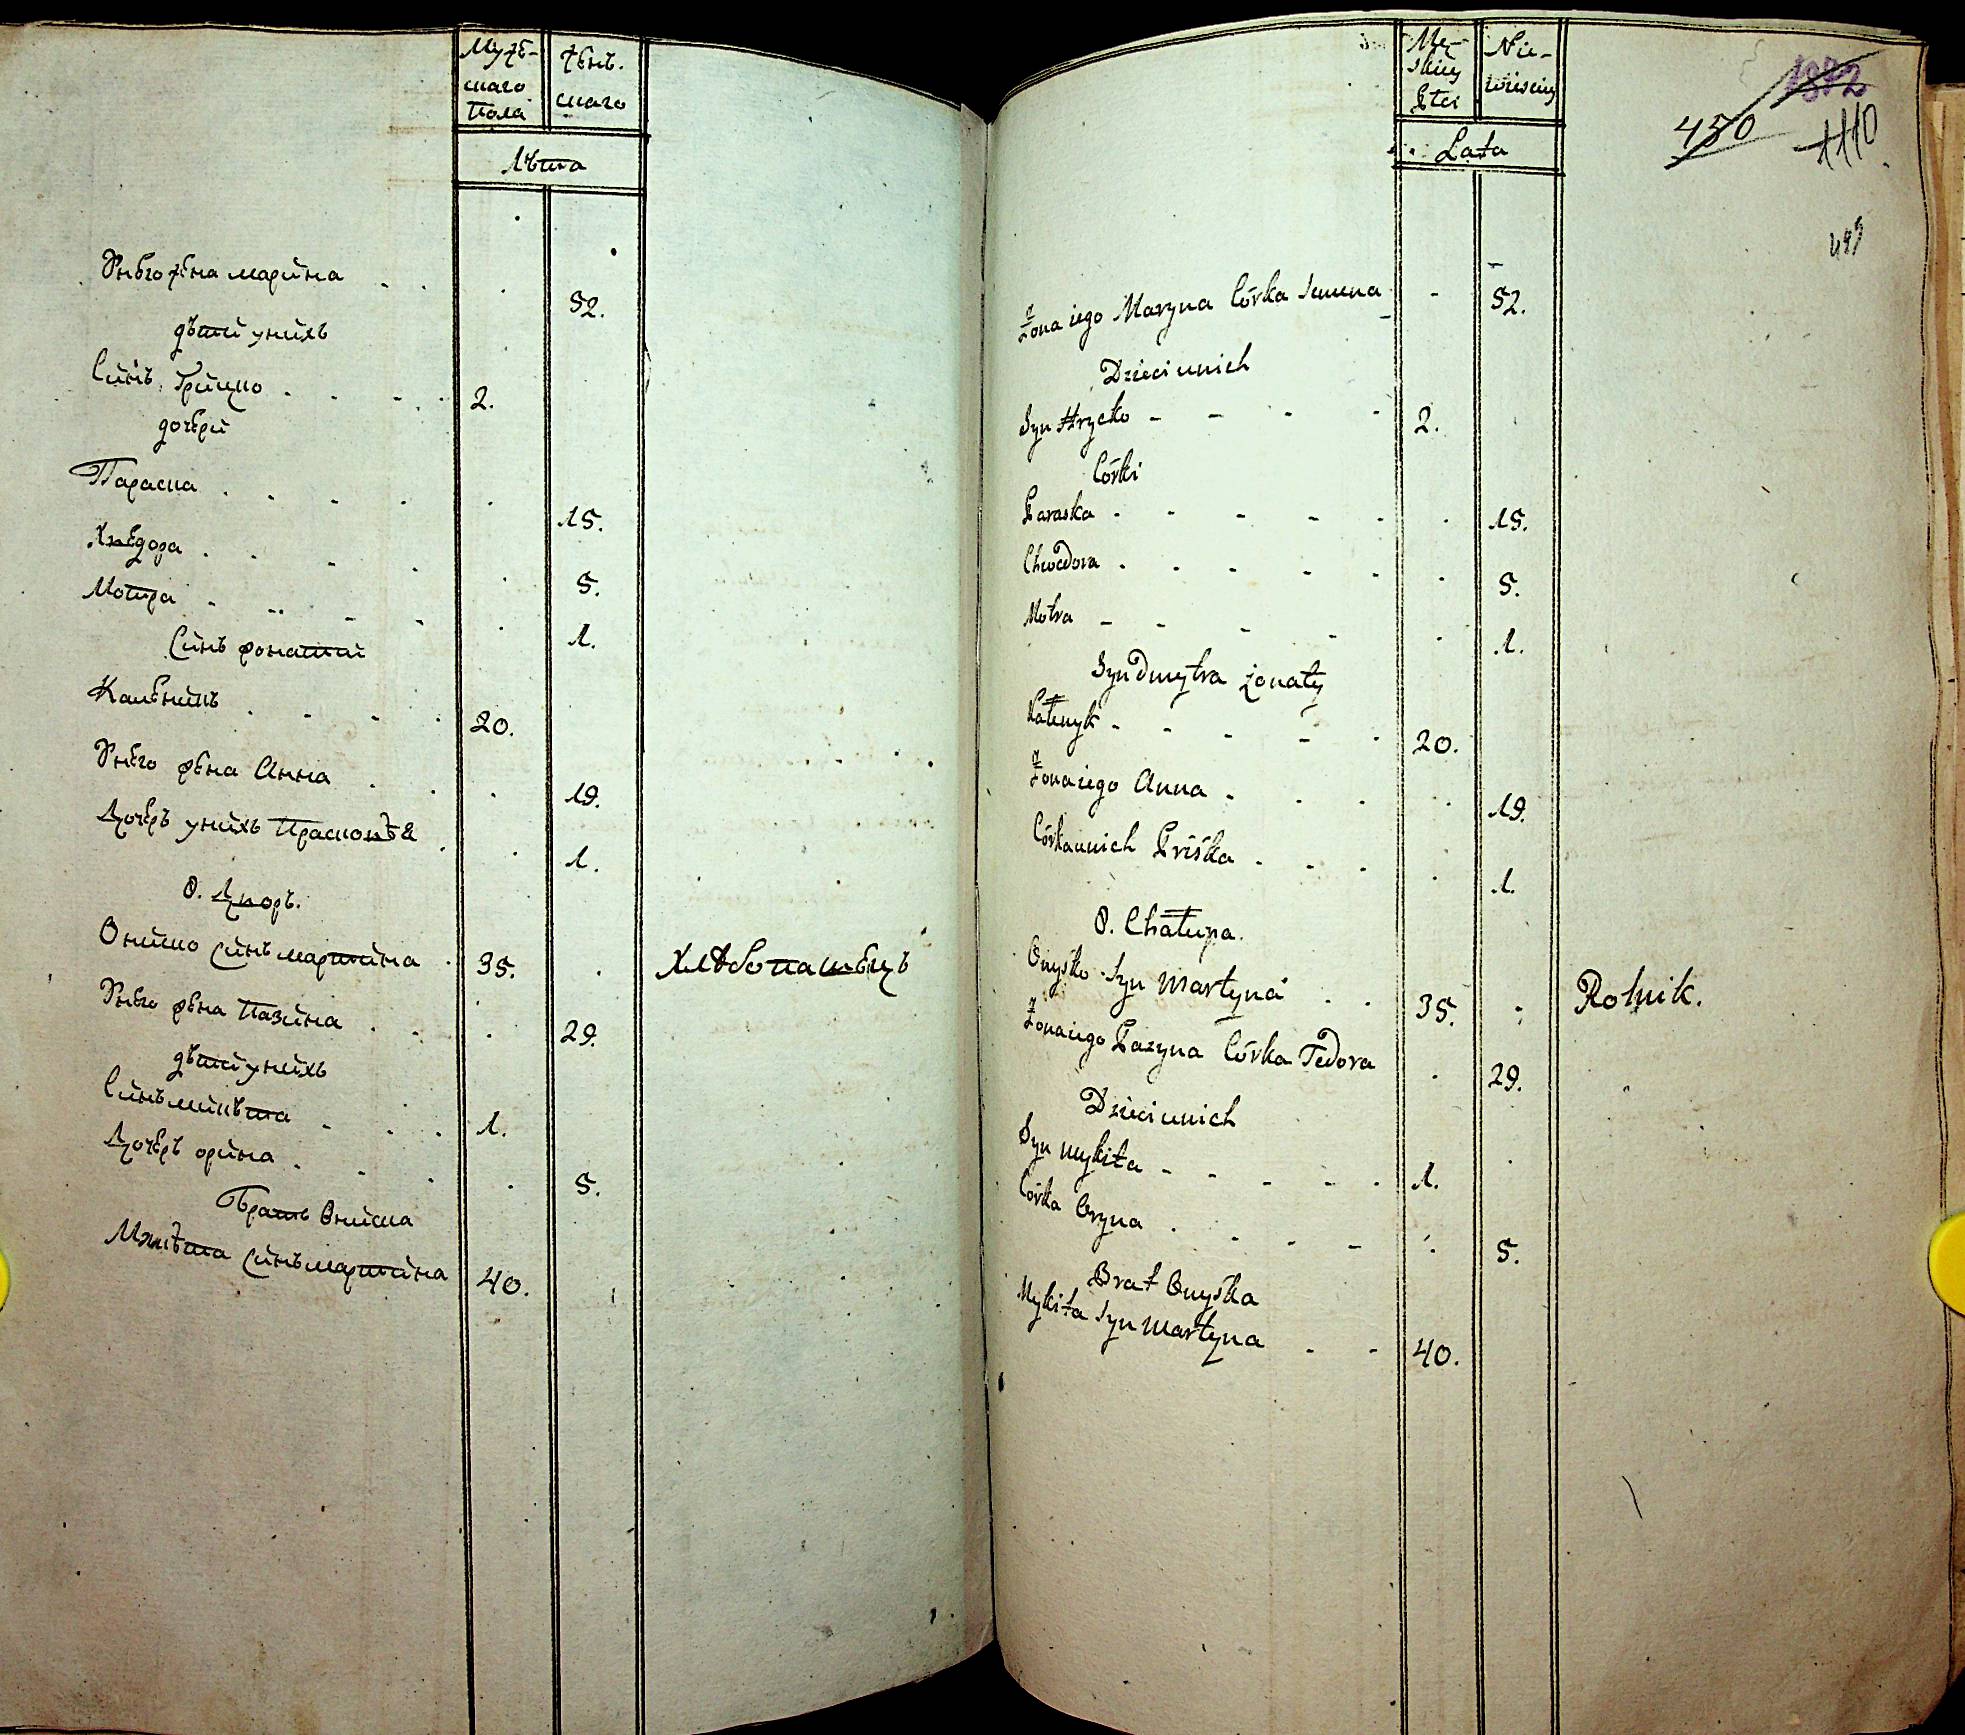 Муже-
скаго
Пола
Жен.
скаго
Лѣта
Унего жена марина 52.
дѣти унихъ
Синъ Грицко 2.
дочери
Параска 15.
Хведора 5.
Мотра 1.
Синъ жонатий
Каленикъ 20.
Унего жена Анна 19.
Дочерь унихъ Прасковѣя 1.
8. Дворъ.
Онишко синъ мартина 35. Хлѣбопашецъ
Унего жена Пазина 29.
дѣти унихъ
Синъ микита 1.
Дочерь орина 5.
Братъ Ониска
Микита синъ мартина 40.
Mę-
skiey
Płci
Nie-
wiesciey
Lata
1872
450
1110
Żona iego Maryna Córka Semena 52.
Dzieci unich
Syn Hrycko 2.
Córki
Paraska 15.
Chwedora 5.
Motra 1.
Syn Dmytra żonaty
Kałenyk 20.
Żona iego Anna 19.
Córka unich Priśka 1.
8. Chałupa.
Onyśko Syn Martyna 35. Rolnik.
Żona iego Pazyna Córka Fedora 29.
Dzieci unich
Syn Mykita 1.
Córka Oryna 5.
Brat Onyśka
Mykita Syn Martyna 40.